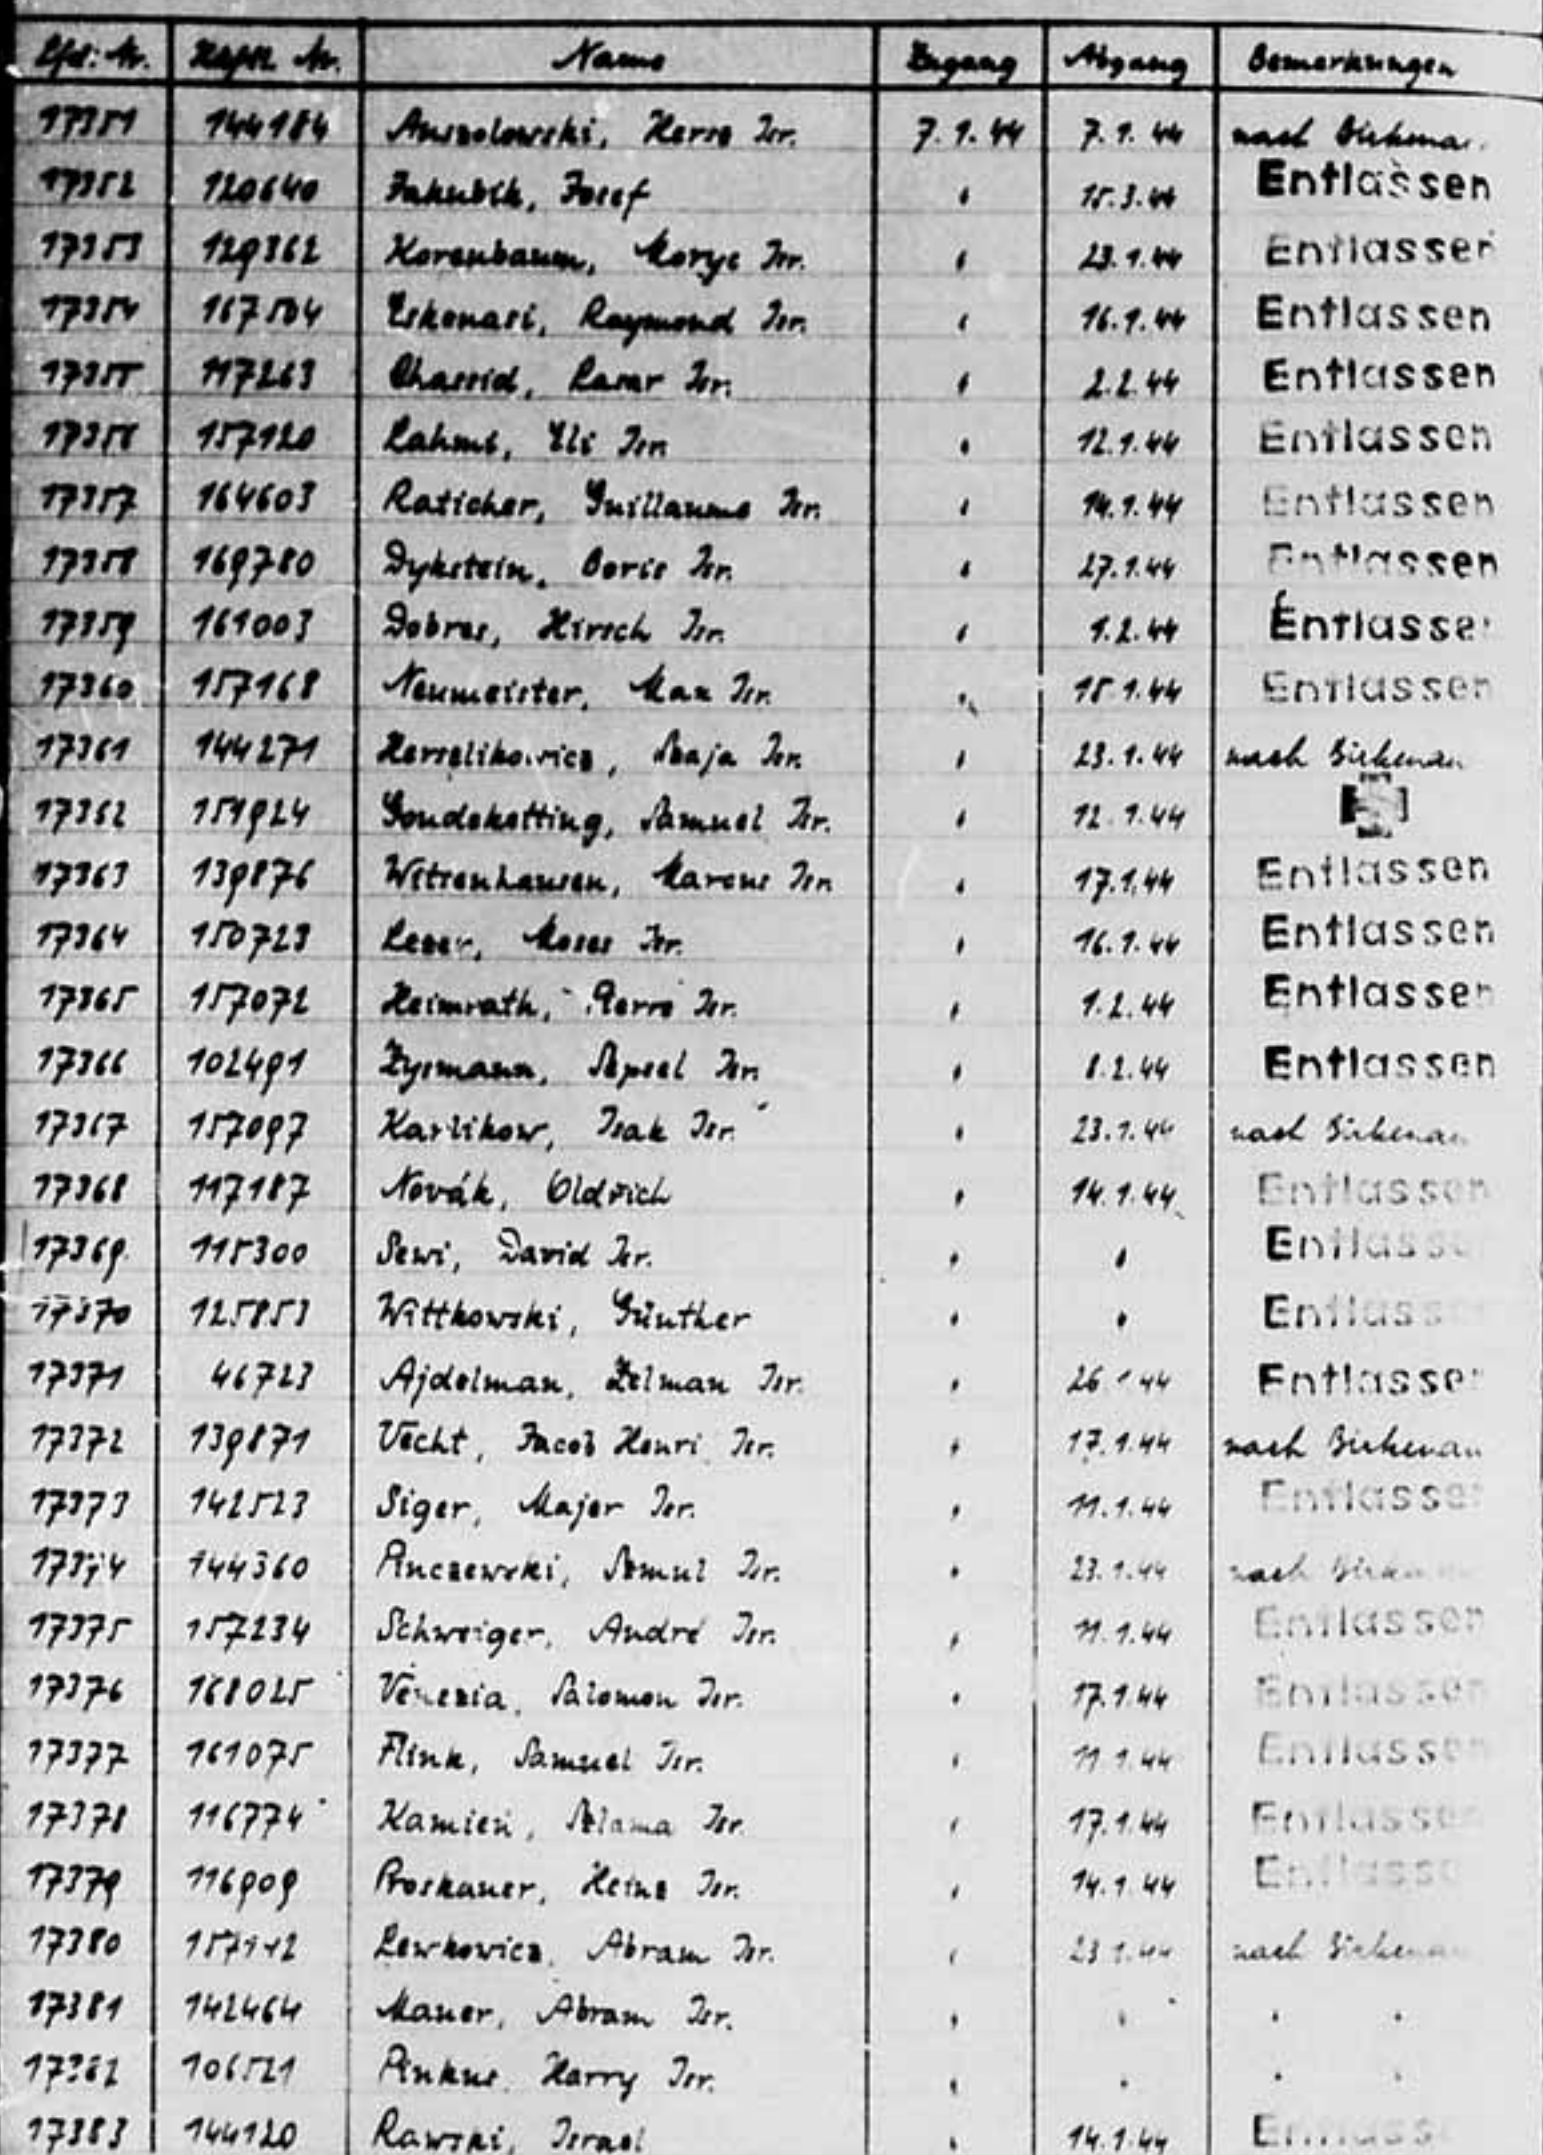 Lfd. Nr. Häftl. Nr. Name Zugang Abgang Bemerkungen
17351 144184 Anszolowski, Hersz Isr. 7.1.44 7.1.44 nach Birkenau
17352 120640 Jakubik, Josef " 15.3.44 Entlassen
17353 129362 Korenbaum, Moryc Isr. " 23.1.44 Entlassen
17354 167504 Eskenasi, Raymond Isr. " 16.1.44 Entlassen
17355 117263 Chassid, Lasar Isr. " 2.2.44 Entlassen
17356 157120 Lahmi, Eli Isr. " 12.1.44 Entlassen
17357 164603 Raticher, Guillaume Isr. " 14.1.44 Entlassen
17358 169780 Dykstein, Boris Isr. " 27.1.44 Entlassen
17359 161003 Dobres, Hirsch Isr. " 1.2.44 Entlassen
17360 157168 Neumeister, Max Isr. " 15.1.44 Entlassen
17361 144271 Herszlikowicz, Szaja Isr. " 23.1.44 nach Birkenau
17362 151924 Goudeketting, Samuel Isr. " 12.1.44
17363 139876 Witzenhausen, Marcus Isr. " 17.1.44 Entlassen
17364 150723 Lezer, Moses Isr. " 16.1.44 Entlassen
17365 157072 Heimrath, Pierre Isr. " 1.2.44 Entlassen
17366 102491 Zysmann, Szpsel Isr. " 8.2.44 Entlassen
17367 157097 Karlikow, Isak Isr. " 23.1.44 nach Birkenau
17368 117187 Novák, Oldřich " 14.1.44 Entlassen
17369 115300 Sewi, David Isr. " " Entlassen
17370 125853 Wittkowski, Günther " " Entlassen
17371 46723 Ajdelman, Zelman Isr. " 26.1.44 Entlassen
17372 139871 Vecht, Jacob Henri Isr. " 17.1.44 nach Birkenau
17373 142523 Siger, Majer Isr. " 11.1.44 Entlassen
17374 144360 Pinczewski, Szmul Isr. " 23.1.44 nach Birkenau
17375 157234 Schweiger, André Isr. " 11.1.44 Entlassen
17376 168025 Venezia, Salomon Isr. " 17.1.44 Entlassen
17377 161075 Flink, Samuel Isr. " 11.1.44 Entlassen
17378 116774 Kamień, Szlama Isr. " 17.1.44 Entlassen
17379 116909 Proskauer, Heinz Isr. " 14.1.44 Entlassen
17380 157142 Lewkowicz, Abram Isr. " 23.1.44 nach Birkenau
17381 142464 Mauer, Abram Isr. " " " "
17382 106521 Pinkus, Harry Isr. " " " "
17383 144120 Rawski, Israel " 14.1.44 Entlassen